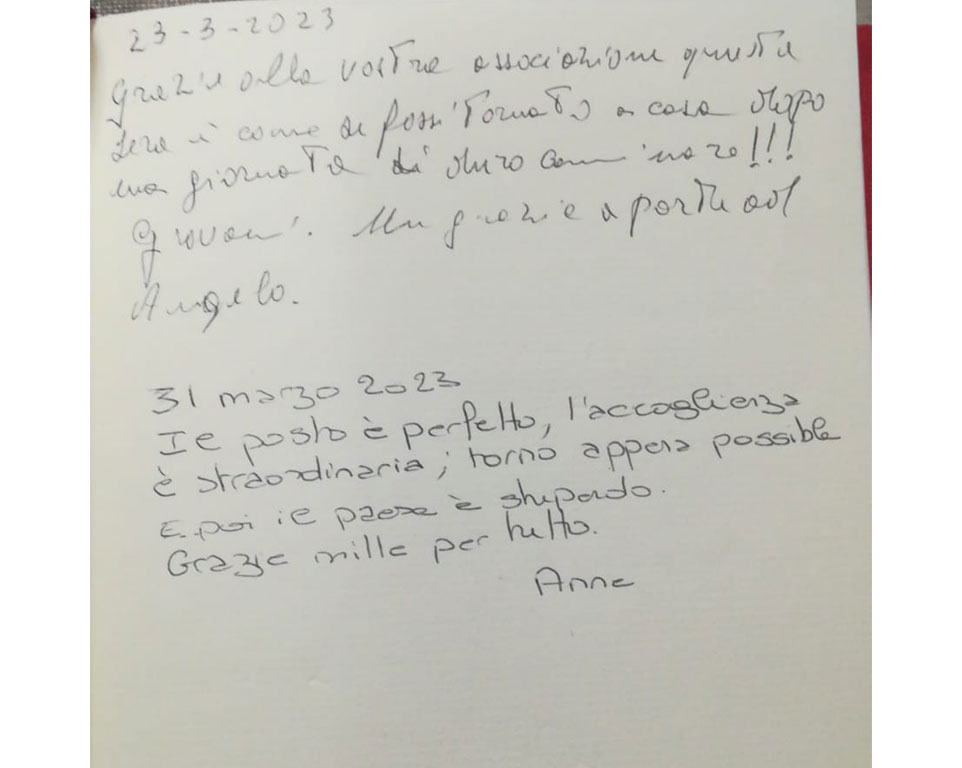 23-3-2023
Grazie alla vostra associazione questa
sera è come se fossi tornato a casa dopo
una giornata di duro cammino!!!
Giovanni. Un grazie a parte ad
Angelo.
31 marzo 2023
Il posto è perfetto, l'accoglienza
è straordinaria; torno appena possibile
E poi il paese è stupendo.
Grazie mille per tutto.
Anne